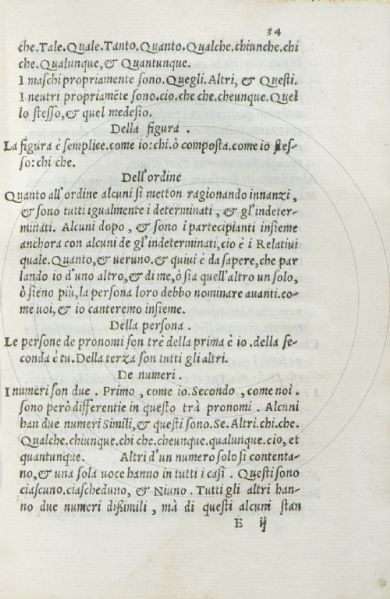 34
che. Tale. Quale. Tanto. Quanto. Qualche. chiunche. chi
che. Qualunque, & Quantunque.
I maschi propriamente sono. Quegli. Altri, & Questi.
I neutri propriamẽte sono. cio. che che. cheunque. Quel
lo stesso, & quel medesio.
Della figura .
La figura è semplice. come io: chi. ò composta. come io stes-
so: chi che.
Dell'ordine
Quanto all'ordine alcuni si metton ragionando innanzi ,
& sono tutti igualmente i determinati , & gl'indeter-
minati. Alcuni dopo , & sono i partecipianti insieme
anchora con alcuni de gl'indeterminati, cio è i Relatiui
quale. Quanto, & ueruno. & quiui è da sapere, che par
lando io d'uno altro, & di me, ò sia quell'altro un solo,
ò sieno più, la persona loro debbo nominare auanti. co-
me uoi, & io canteremo insieme.
Della persona .
Le persone de pronomi son tre della prima è io. della se-
conda è tu. Della terza son tutti gli altri.
De numeri .
I numeri son due . Primo , come io. Secondo , come noi .
sono però differentie in questo trà pronomi . Alcuni
han due numeri Simili, & questi sono. Se. Altri. chi. che.
Qualche. chiunque. chi che. cheunque. qualunque. cio, et
quantunque. Altri d'un numero solo si contenta-
no, & una sola uoce hanno in tutti i casi . Questi sono
ciascuno. ciascheduno, & Niuno . Tutti gli altri han-
no due numeri dißimili , mà di questi alcuni stan
E ij